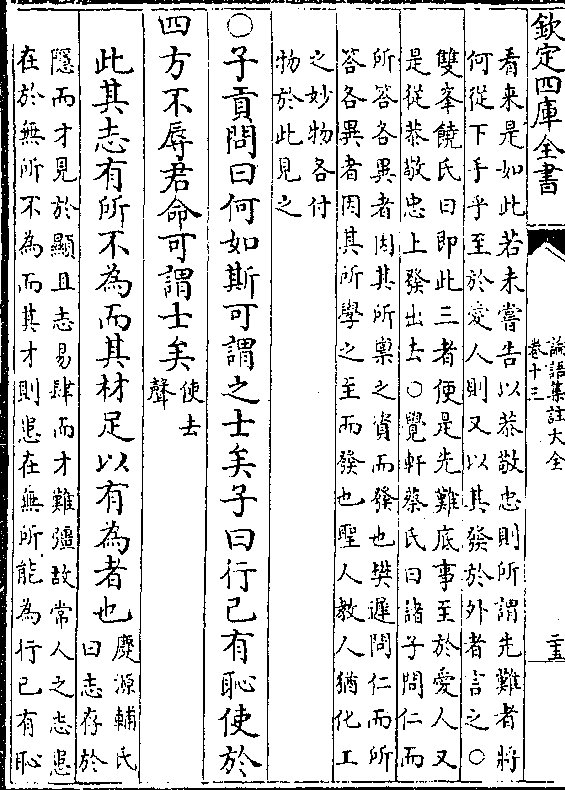 欽定四庫全書
論語集註大全
卷十三
二五
看来是如此若未嘗告以恭敬忠則所謂先難者將
何從下手乎至於愛人則又以其發於外者言之○
雙峯饒氏曰即此三者便是先難底事至於愛人又
是從恭敬忠上發出去○覺軒蔡氏曰諸子問仁而
所答各異者因其所稟之資而發也樊遲問仁而所
答各異者因其所學之至而發也聖人教人猶化工
之妙物各付
物於此見之
○子貢問曰何如斯可謂之士矣子曰行己有恥使於
四方不辱君命可謂士矣使去
聲
此其志有所不為而其材足以有為者也慶源輔氏
曰志存於
隱而才見於顯且志易肆而才難彊故常人之志患
在於無所不為而其才則患在無所能為行已有恥